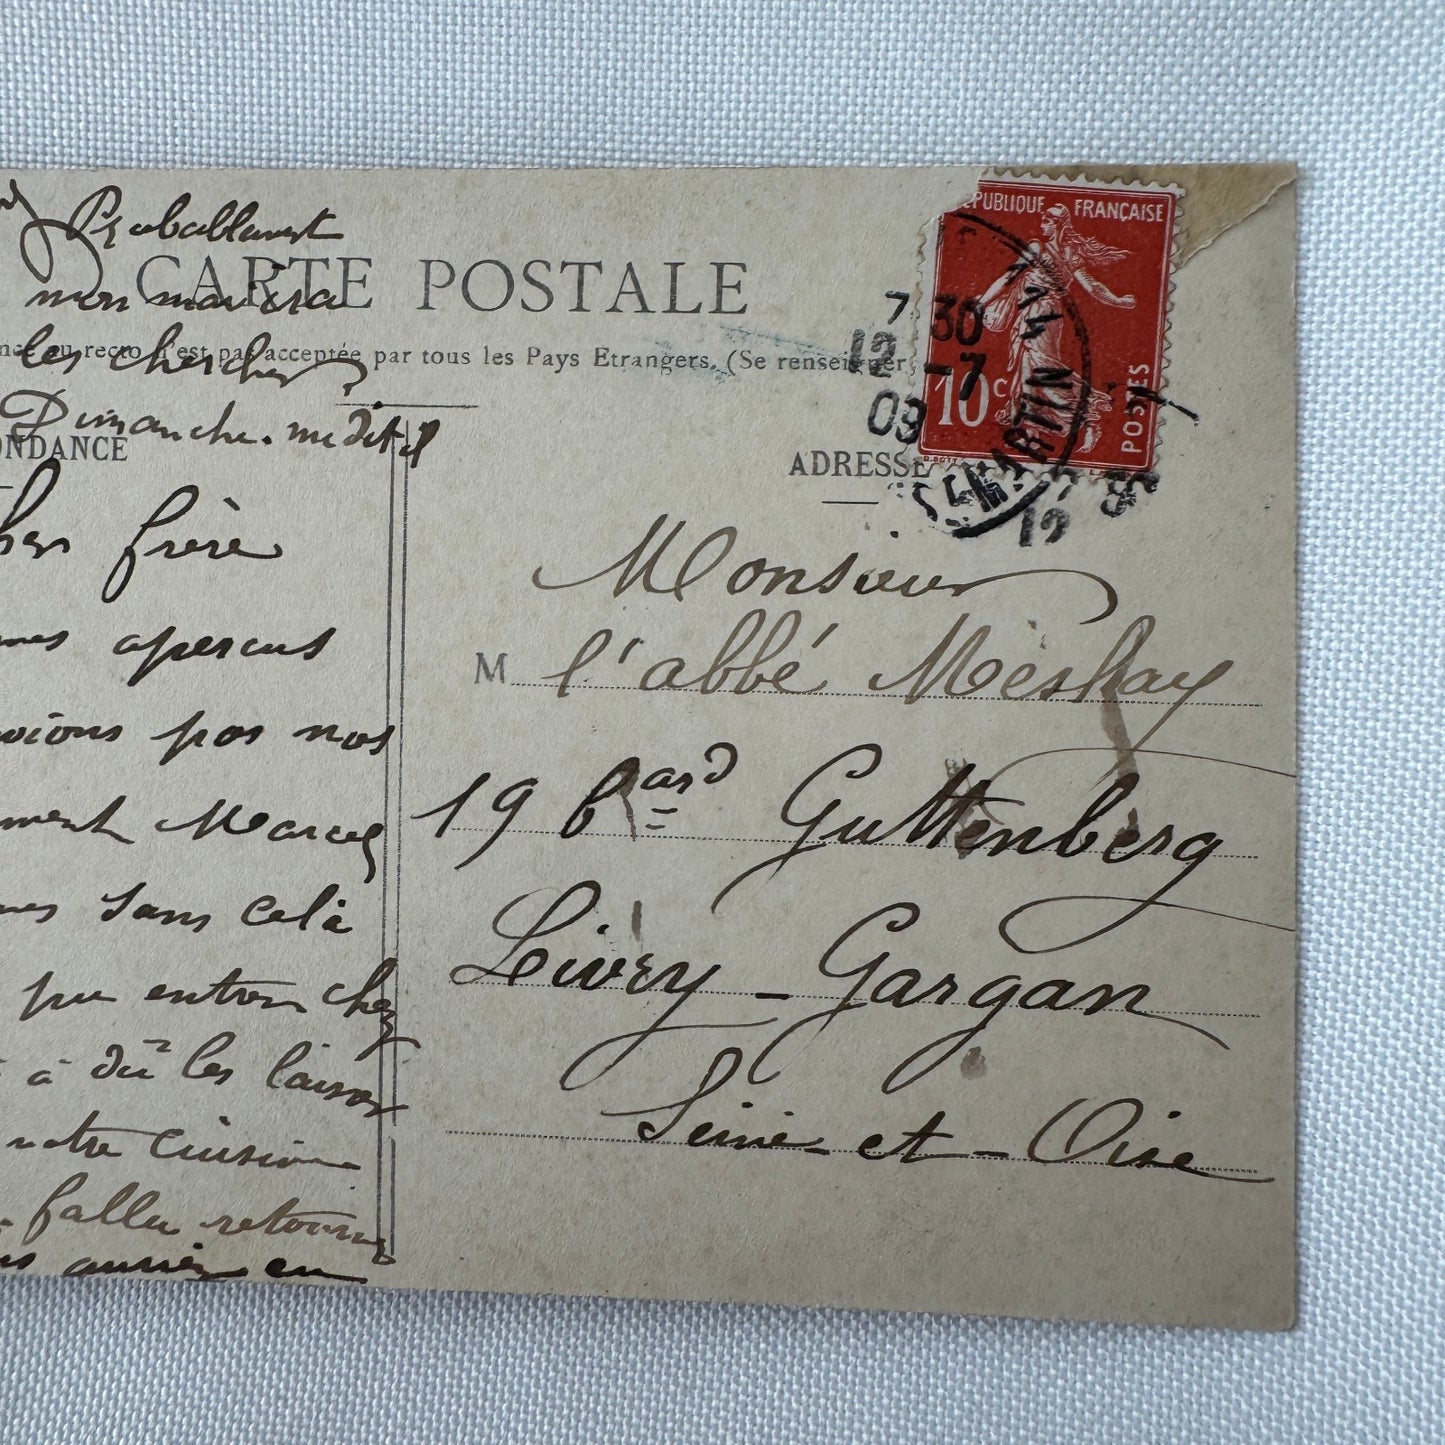 Probablement
mon mari ira
les chercher
Dimanche. midit
CARTE POSTALE
au recto n'est pas acceptée par tous les Pays Etrangers. (Se renseigner
ONDANCE
frère
apercus
pas nos
ment Marcel
sans celà
pu entrer chez
à dû les laisser
notre cuisine
fallu retourner
en
RÉPUBLIQUE FRANÇAISE
10c
POSTES
7 30
12 -7
09
ST-MARTIN
ADRESSE
Monsieur
M l'abbé Meshay
19 bard Guttenberg
Livry-Gargan
Seine-et-Oise